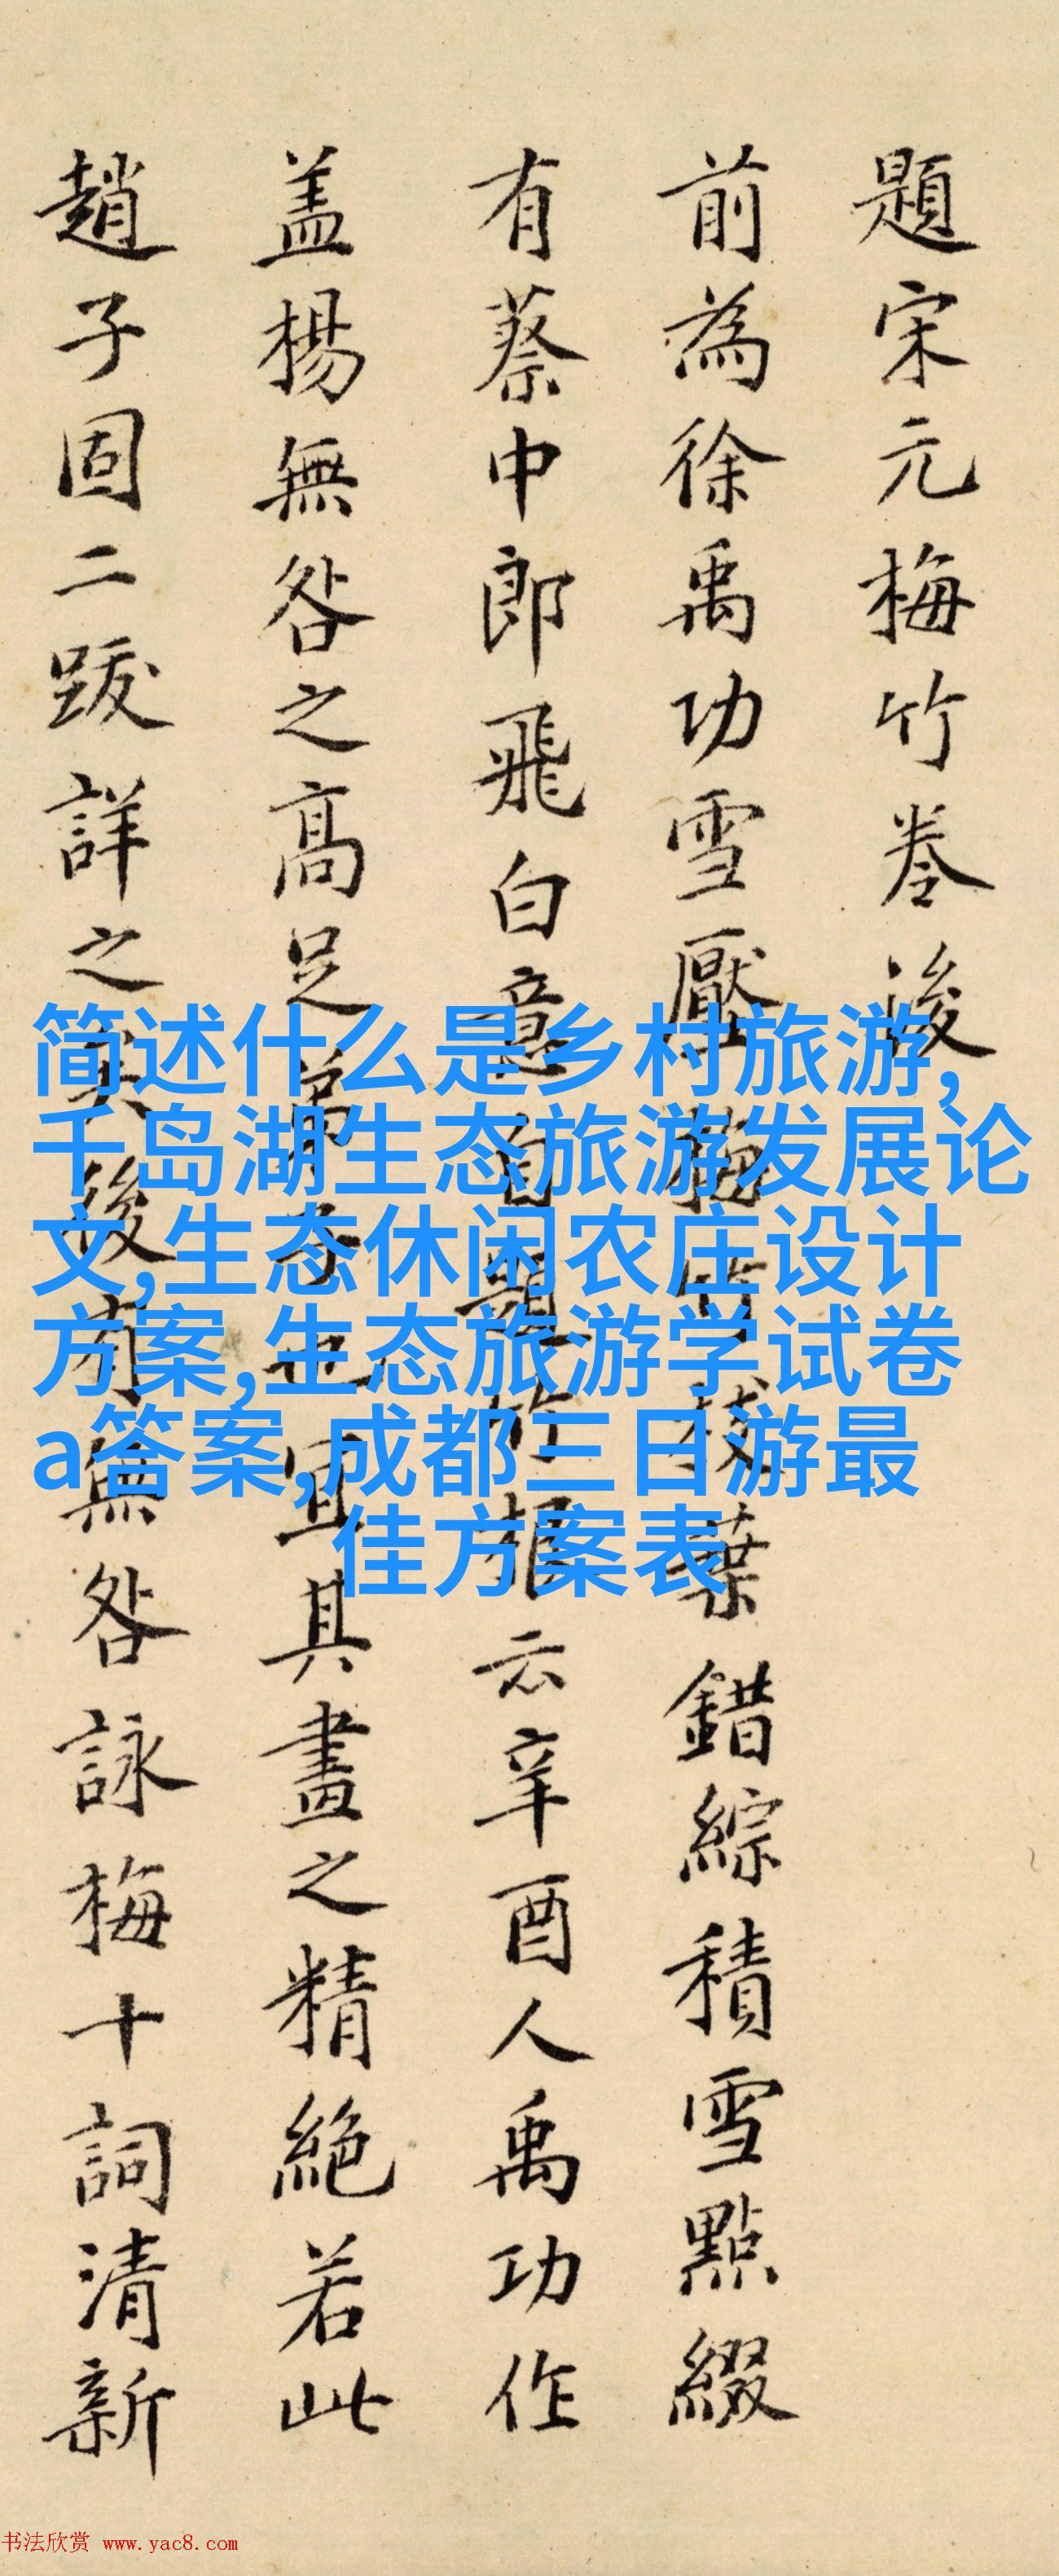 題宋元梅竹卷後
前為徐禹功雪壓梅竹枝葉錯綜積雪點綴
有蔡中郎飛白意自題竹根云辛酉人禹功作
盖楊無咎之高足弟子也宜其畫之精絶若此
趙子固二跋詳之矣後有無咎詠梅十詞清新
简述什么是乡村旅游,
千岛湖生态旅游发展论
文,生态休闲农庄设计
方案,生态旅游学试卷
a答案,成都三日游最
佳方案表
书法欣赏 www.yac8.com